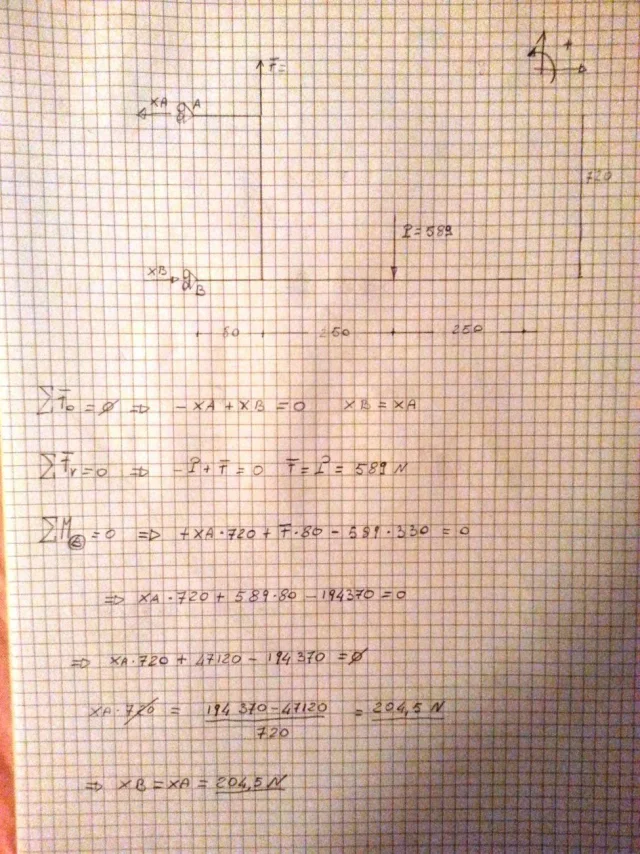 F=
+
XA A
720
P=589
XB B
80 250 250
ΣFo = 0 ⇒ -XA + XB = 0 XB = XA
ΣFv = 0 ⇒ -P + F = 0 F = P = 589 N
ΣM = 0 ⇒ +XA·720 + F·80 - 589·330 = 0
⇒ XA·720 + 589·80 - 194370 = 0
⇒ XA·720 + 47120 - 194370 = 0
XA·720 = 194370-47120 / 720 = 204,5 N
⇒ XB = XA = 204,5 N